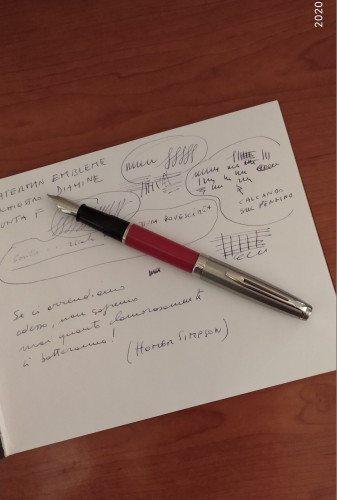 2020
WATERMAN EMBLEME
DIAMINE
PUNTA F
ROVESCIATA
CALCANDO
SUL PENNINO
Se ci arrendiamo
adesso, non sapremo
mai quanto clamorosamente
ci batteranno!
(HOMER SIMPSON)